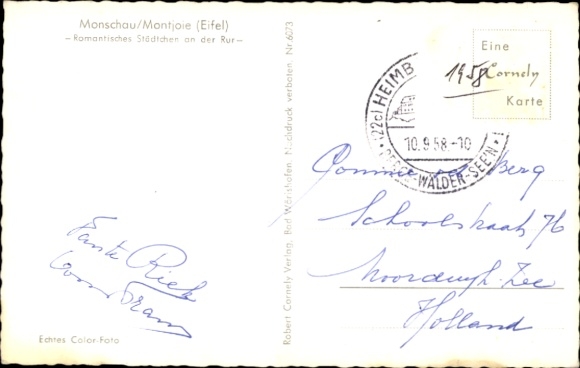 Monschau/Montjoie (Eifel)
—Romantisches Städtchen an der Rur—
Eine
Cornely
Karte
1958
(22c) HEIMB
10.9.58.-10
-WÄLDER-SEE'N
Robert Cornely Verlag, Bad Wörishofen. Nachdruck verboten. Nr. 6073
Tante Riek
oom Fran
berg
Schoolstraat 76
Noordwijk-Zee
Holland
Echtes Color-Foto